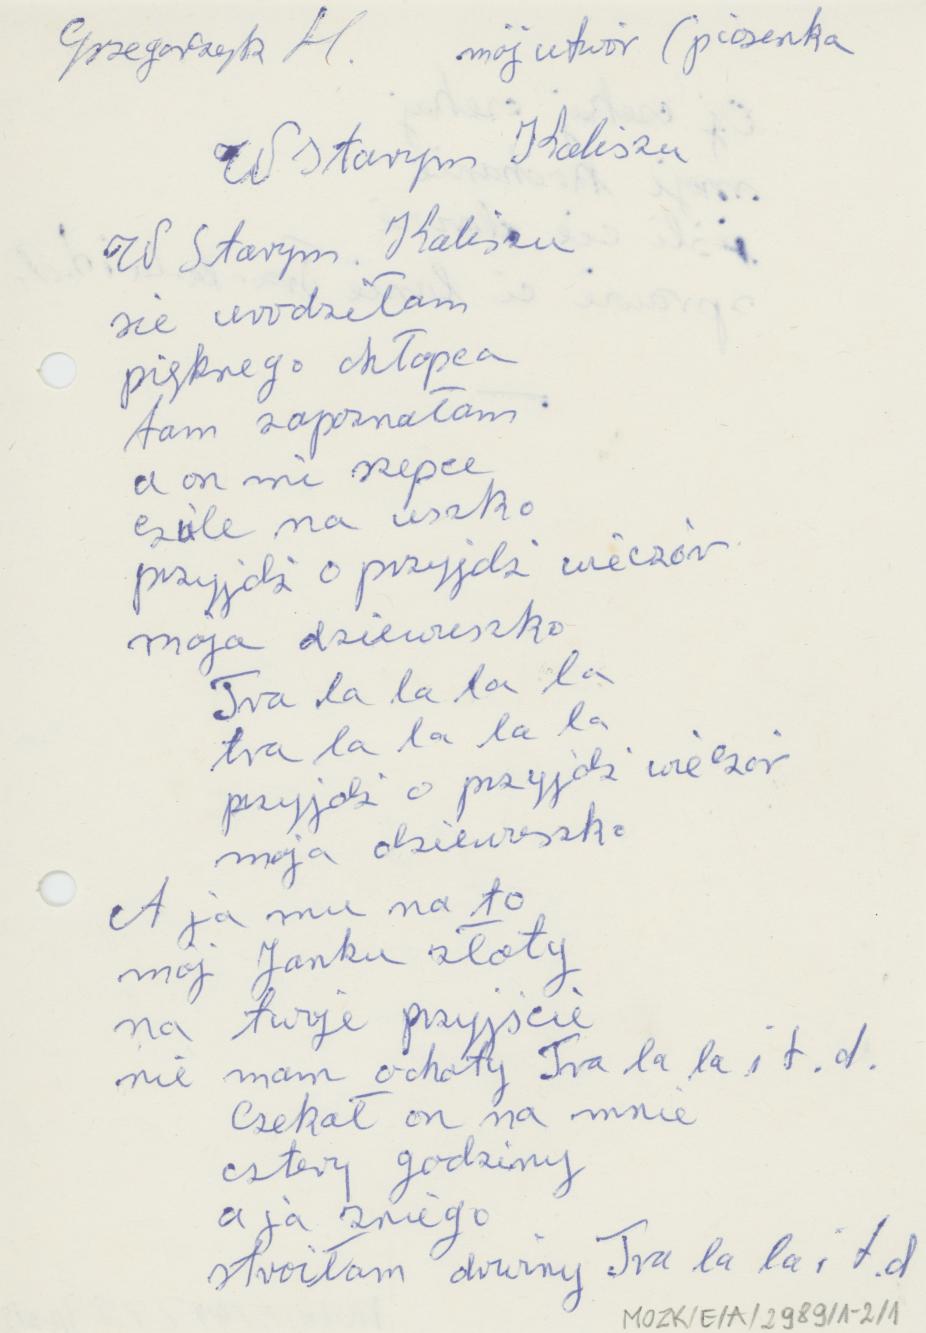 Grzegorzayk H. mój utwór (piosenka
W Starym Kaliszu
W Starym Kaliszu
sie urodziłam
pięknego chłopca
tam zapoznałam
a on mi szepce
czule na uszko
przyjdź o przyjdź wieczór
moja dzieweszko
Tra la la la la
tra la la la la
przyjdź o przyjdź wieczór
moja dzieweszko
A ja mu na to
mój Janku złoty
na twoje przyjście
nie mam ochoty Tra la la i t.d.
Czekał on na mnie
cztery godziny
a ja zniego
stroiłam drwiny Tra la la i t.d
MOZK/E/A/2989/1-2/1